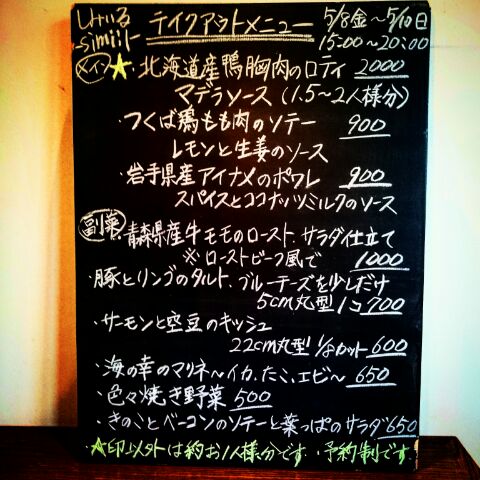 しみいる テイクアウトメニュー 5/8金～5/10日
-simi:l- 15:00～20:00
メイン ★・北海道産鴨胸肉のロティ 2000
マデラソース (1.5～2人様分)
・つくば鶏もも肉のソテー 900
レモンと生姜のソース
・岩手県産アイナメのポワレ 900
スパイスとココナッツミルクのソース
副菜 ・青森県産牛モモのロースト、サラダ仕立て
※ローストビーフ風で 1000
・豚とリンゴのタルト、ブルーチーズを少しだけ
5cm丸型 1コ 700
・サーモンと空豆のキッシュ
22cm丸型 1/8カット 600
・海の幸のマリネ～イカ、たこ、エビ～ 650
・色々焼き野菜 500
・きのことベーコンのソテーと葉っぱのサラダ 650
・★印以外は約お1人様分です・予約制です